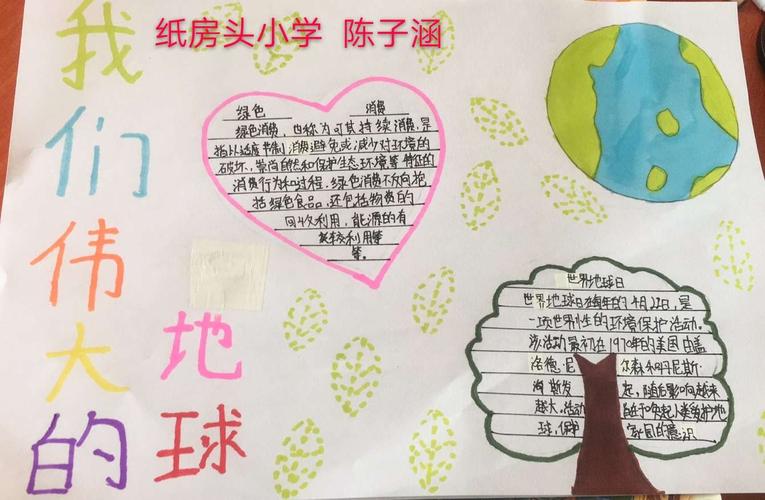 纸房头小学 陈子涵
我们伟大的
地球
绿色 消费
绿色消费，也称为可持续消费，是
指以适度节制消费避免或减少对环境的
破坏、崇尚自然和保护生态环境等特征的
消费行为和过程．绿色消费不仅包
括绿色食品，还包括物资的
回收利用，能源的有
效利用等
等。
世界地球日
世界地球日在每年的4月22日，是
一项世界性的环境保护活动．
该活动最初在1970年的美国由盖
洛德·尼尔森和丹尼斯·
海斯发起，随后影响越来
越大．活动旨在于唤起人类爱护地
球，保护家园的意识．